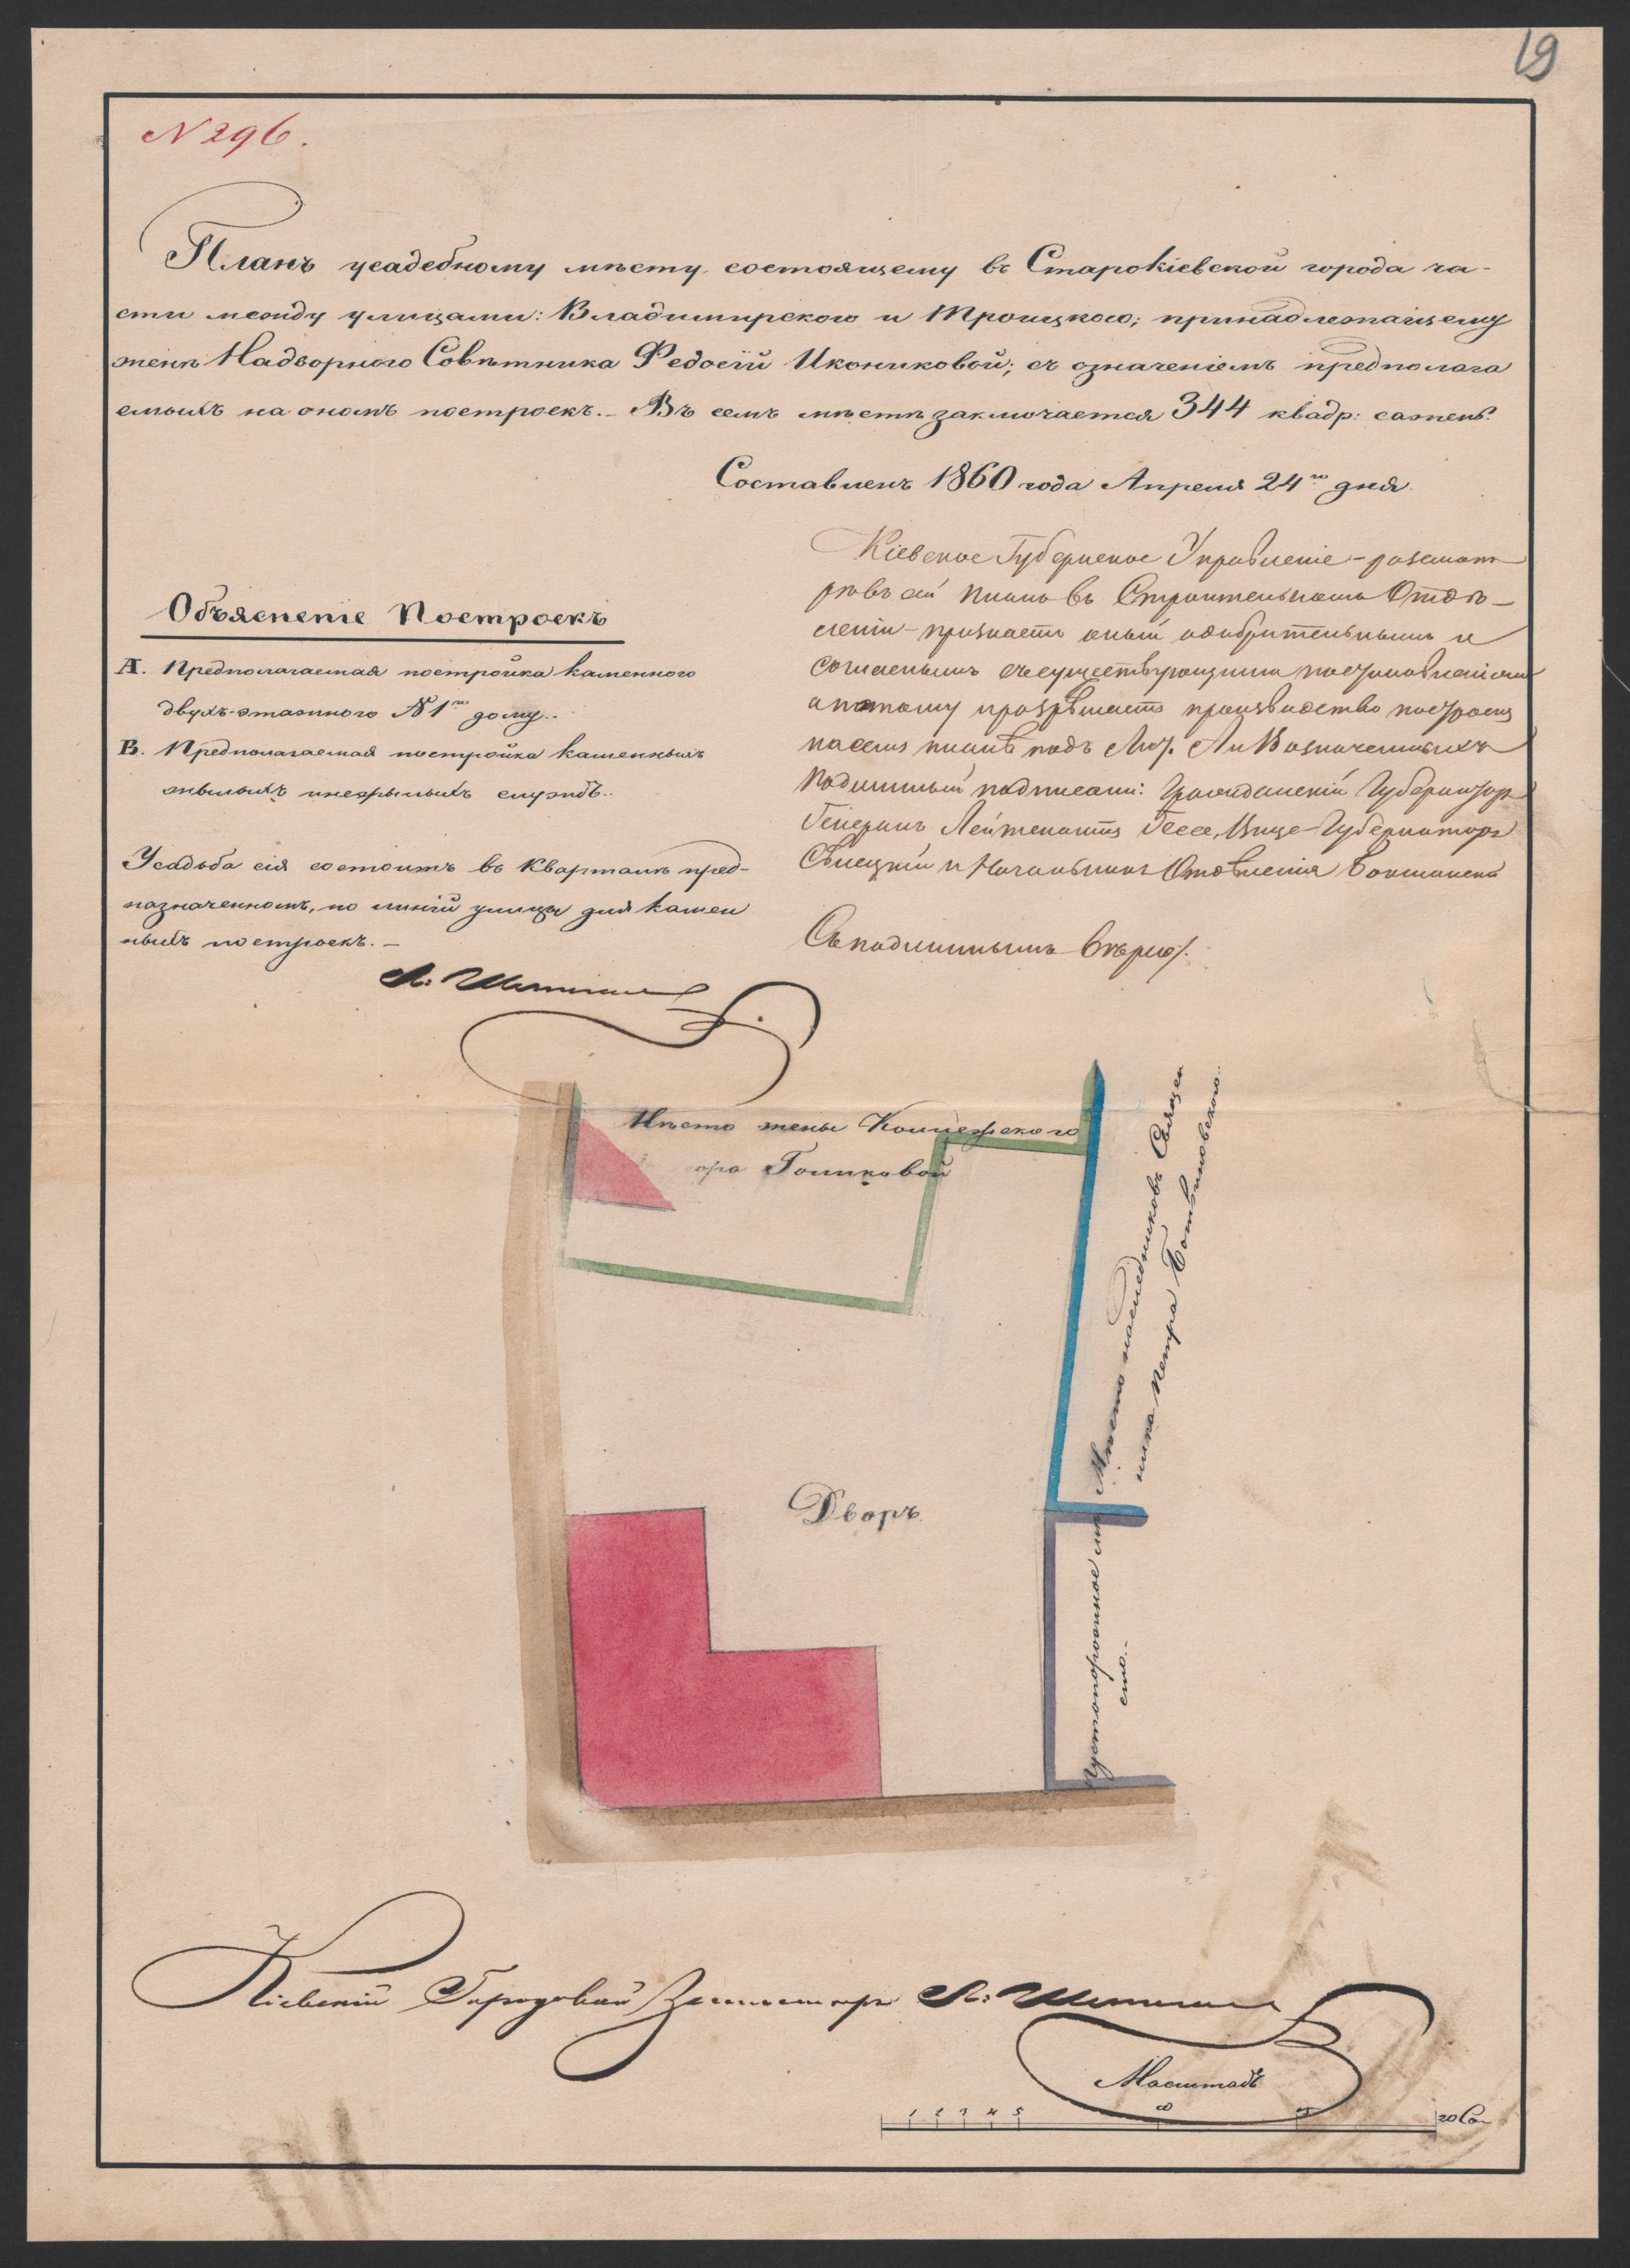 19
N 296.
Планъ усадебному мѣсту состоящему въ Старокіевской города ча-
сти между улицами: Владимирскою и Троицкою; принадлежащему
женѣ Надворнаго Совѣтника Федосіи Икониковой; съ означеніемъ предполага
емыхъ на ономъ построекъ. – Въ семъ мѣстѣ заключается 344 квадр: сажень.
Составленъ 1860 года Апреля 24го дня.
Кіевское Губернское Управленіе – разсмот
рѣвъ сей планъ въ Строительномъ Отдѣ-
леніи – признаетъ оный одобрительнымъ и
согласнымъ съ существующими постановленіями
а потому разрѣшаетъ производство построекъ
на семъ планѣ подъ Лит. А и В означенныхъ
Подлинный подписали: Гражданскій Губернаторъ
Генералъ Лейтенантъ Гессе, Вице-Губернаторъ
Селецкій и Начальникъ Отдѣленія
Съ подлиннымъ вѣрно.
Объясненіе Построекъ
А. Предполагаемая постройка каменнаго
двухъ-этажнаго N 1го дому..
В. Предполагаемая постройка каменныхъ
жилыхъ и нежилыхъ службъ..
Усадьба сія состоитъ въ кварталѣ пред-
назначенномъ, по линіи улицы для камен
ныхъ построекъ. –
Мѣсто жены Коллежскаго
ора Голиковой
Мѣсто наслѣдниковъ Священ
ника Петра Ботвиновскаго..
Дворъ.
Пустопорожное мѣ
сто..
Кіевскій Городовой Землемѣръ Л:
Масштабъ
1 2 3 4 5 20 Са